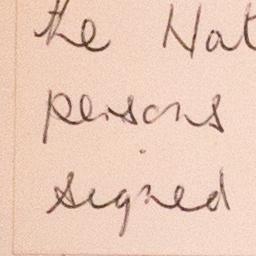 the Nat
persons
signed